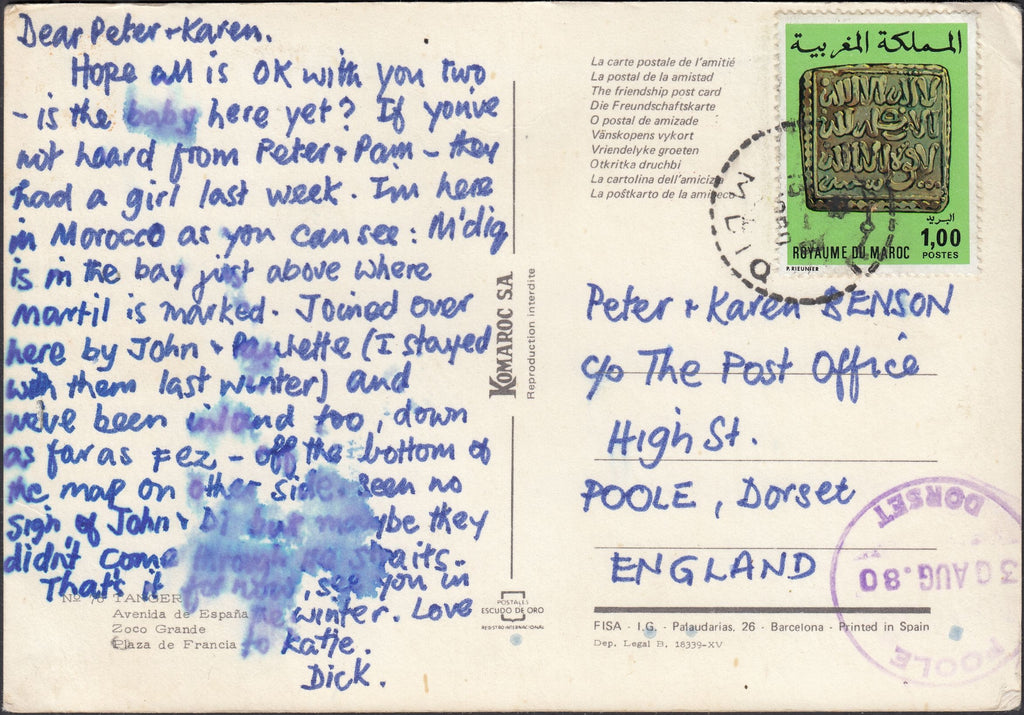 Dear Peter + Karen.
Hope all is OK with you two
- is the baby here yet? If you've
not heard from Peter + Pam - they
had a girl last week. I'm here
in Morocco as you can see: M'diq
is in the bay just above where
martil is marked. Joined over
here by John + Paulette (I stayed
with them last winter) and
we've been inland too, down
as far as Fez - off the bottom of
the map on other side. Seen no
sign of John + Di but maybe they
didn't come through the straits.
That's it for now, see you in
the winter. Love
to Katie.
Dick.
Nº 70 TANGER
Avenida de España
Zoco Grande
Plaza de Francia
KOMAROC SA
Reproduction interdite
POSTALES
ESCUDO DE ORO
REGISTRO INTERNACIONAL
La carte postale de l'amitié
La postal de la amistad
The friendship post card
Die Freundschaftskarte
O postal de amizade
Vänskopens vykort
Vriendelyke groeten
Otkritka druchbi
La cartolina dell'amicizia
La poŝtkarto de la amikeco
المملكة المغربية
البريد
1,00
ROYAUME DU MAROC POSTES
P. RIEUNIER
MDIQ
Peter + Karen BENSON
c/o The Post Office
High St.
POOLE, Dorset
ENGLAND
DORSET
30 AUG.80
POOLE
FISA - I.G. - Palaudarias, 26 - Barcelona - Printed in Spain
Dep. Legal B. 18339-XV